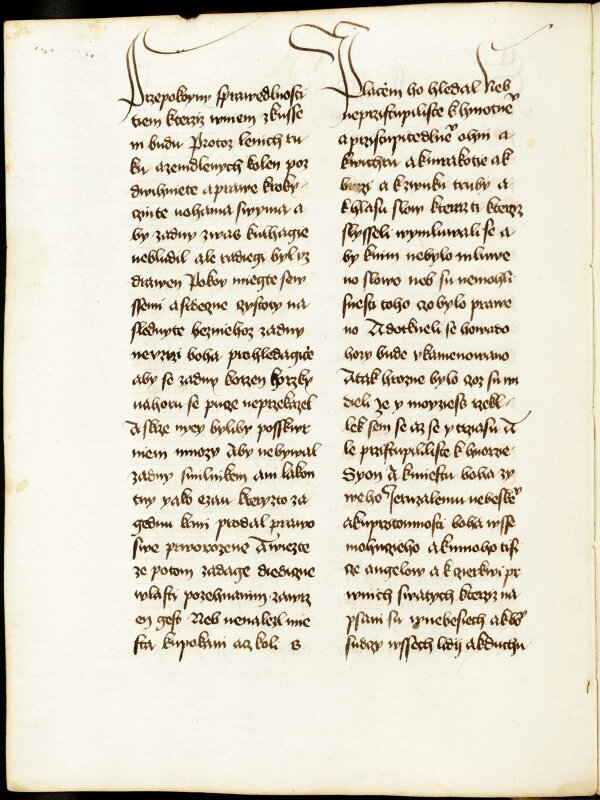 przepokoyny sprawedlnosti
tiem kterziz wniem zkusse
ni budu Protoz lenich ru
ku azemdlenych kolen poz
dwihniete aprawe kroky
czinte nohama swyma a
by zadny zwas kulhagie
nebludil ale radiegi byl vz
drawen Pokoy miegte sew
ssemi asrdeczne czystoty na
sledugte bezniehoz zadny
nevzrzi boha prohledagice
aby se zadny korzen horzky
nahoru se puczie neprzekazel
A skrze nyey bylyby posskwr
nieni mnozy Aby nebywal
zadny smilnikem ani lakom
tny yako ezau kteryzto za
gednu krmi prodal prawo
swe prworozene A wiezte
ze potom zadage diediczne
wlasti pozehnanim zawrz
en gest Neb nenalezl mie
sta kupokani acz koli s
Placzem ho hledal Neb
neprzistupiliste k hmotne
aprzistupitedlne ohni a
kwichru a kmrakotie ak
burzi a k zwuku truby a
k hlasu slow kterzizti kterziz
slysseli wymluwali se a
by knim nebylo mluwe
no slowo neb su nemohli
snesti toho czo bylo prawe
no A dotkneli se howado
hory bude vkamenowano
A tak hrozne bylo czoz su wi
dieli ze y moyziess rzekl
lek sem se az se y trziasu A
le przistupiliste k huorze
Syon A kmiestu boha zy
weho Jeruzalemu nebeske
akuprzitomnosti boha wsse
mohuczieho akmnoho tisi
cze angelow a k czierkwi pr
wnich swatych kterziz na
psani su wnebesiech akbo
sudczy wssech lidij akduchu